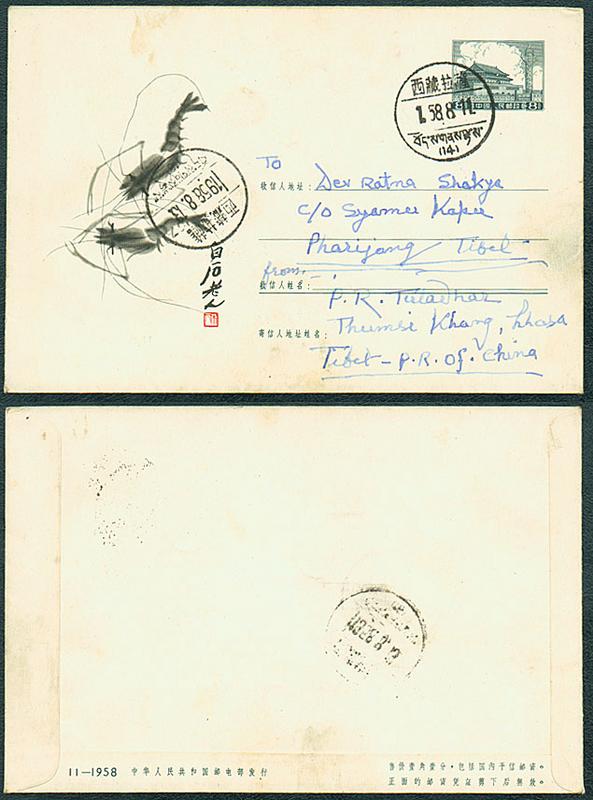 8 中国人民邮政 8
西藏拉薩
1958.8.11
(14)
1958.8.13
白石老人
To
收信人地址：Dev Ratna Shakya
c/o Syamu Kapu
Pharijong Tibet
from
收信人姓名：
P. R. Tuladhar
Thumsi Khang, Lhasa
寄信人地址姓名：
Tibet - P. R. Of. China
11—1958 中华人民共和国邮电部发行
售价壹角壹分·包括国内平信邮资。
正面的邮资凭证剪下后无效。